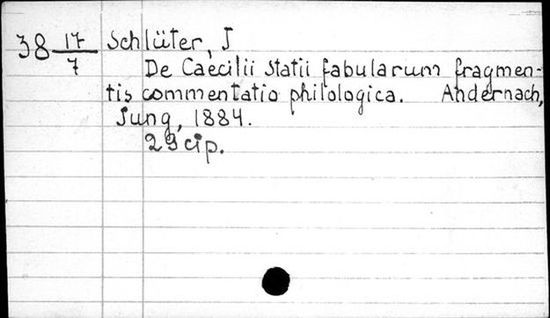 38 17/7 Schlüter, J
De Caecilii Statii fabularum fragmen-
tis commentatio philologica. Andernach,
Jung, 1884.
29 стр.